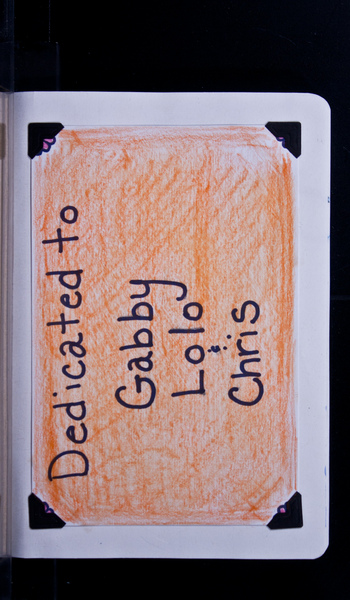 Dedicated to
Gabby
Lolo
&
Chris